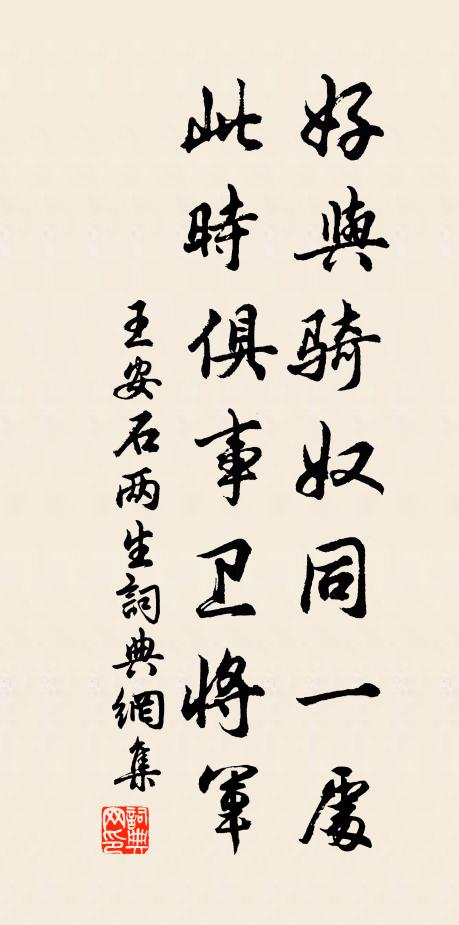 好與骑奴同一處
此時俱事卫將軍
王安石两生詞典網集
詞典網印